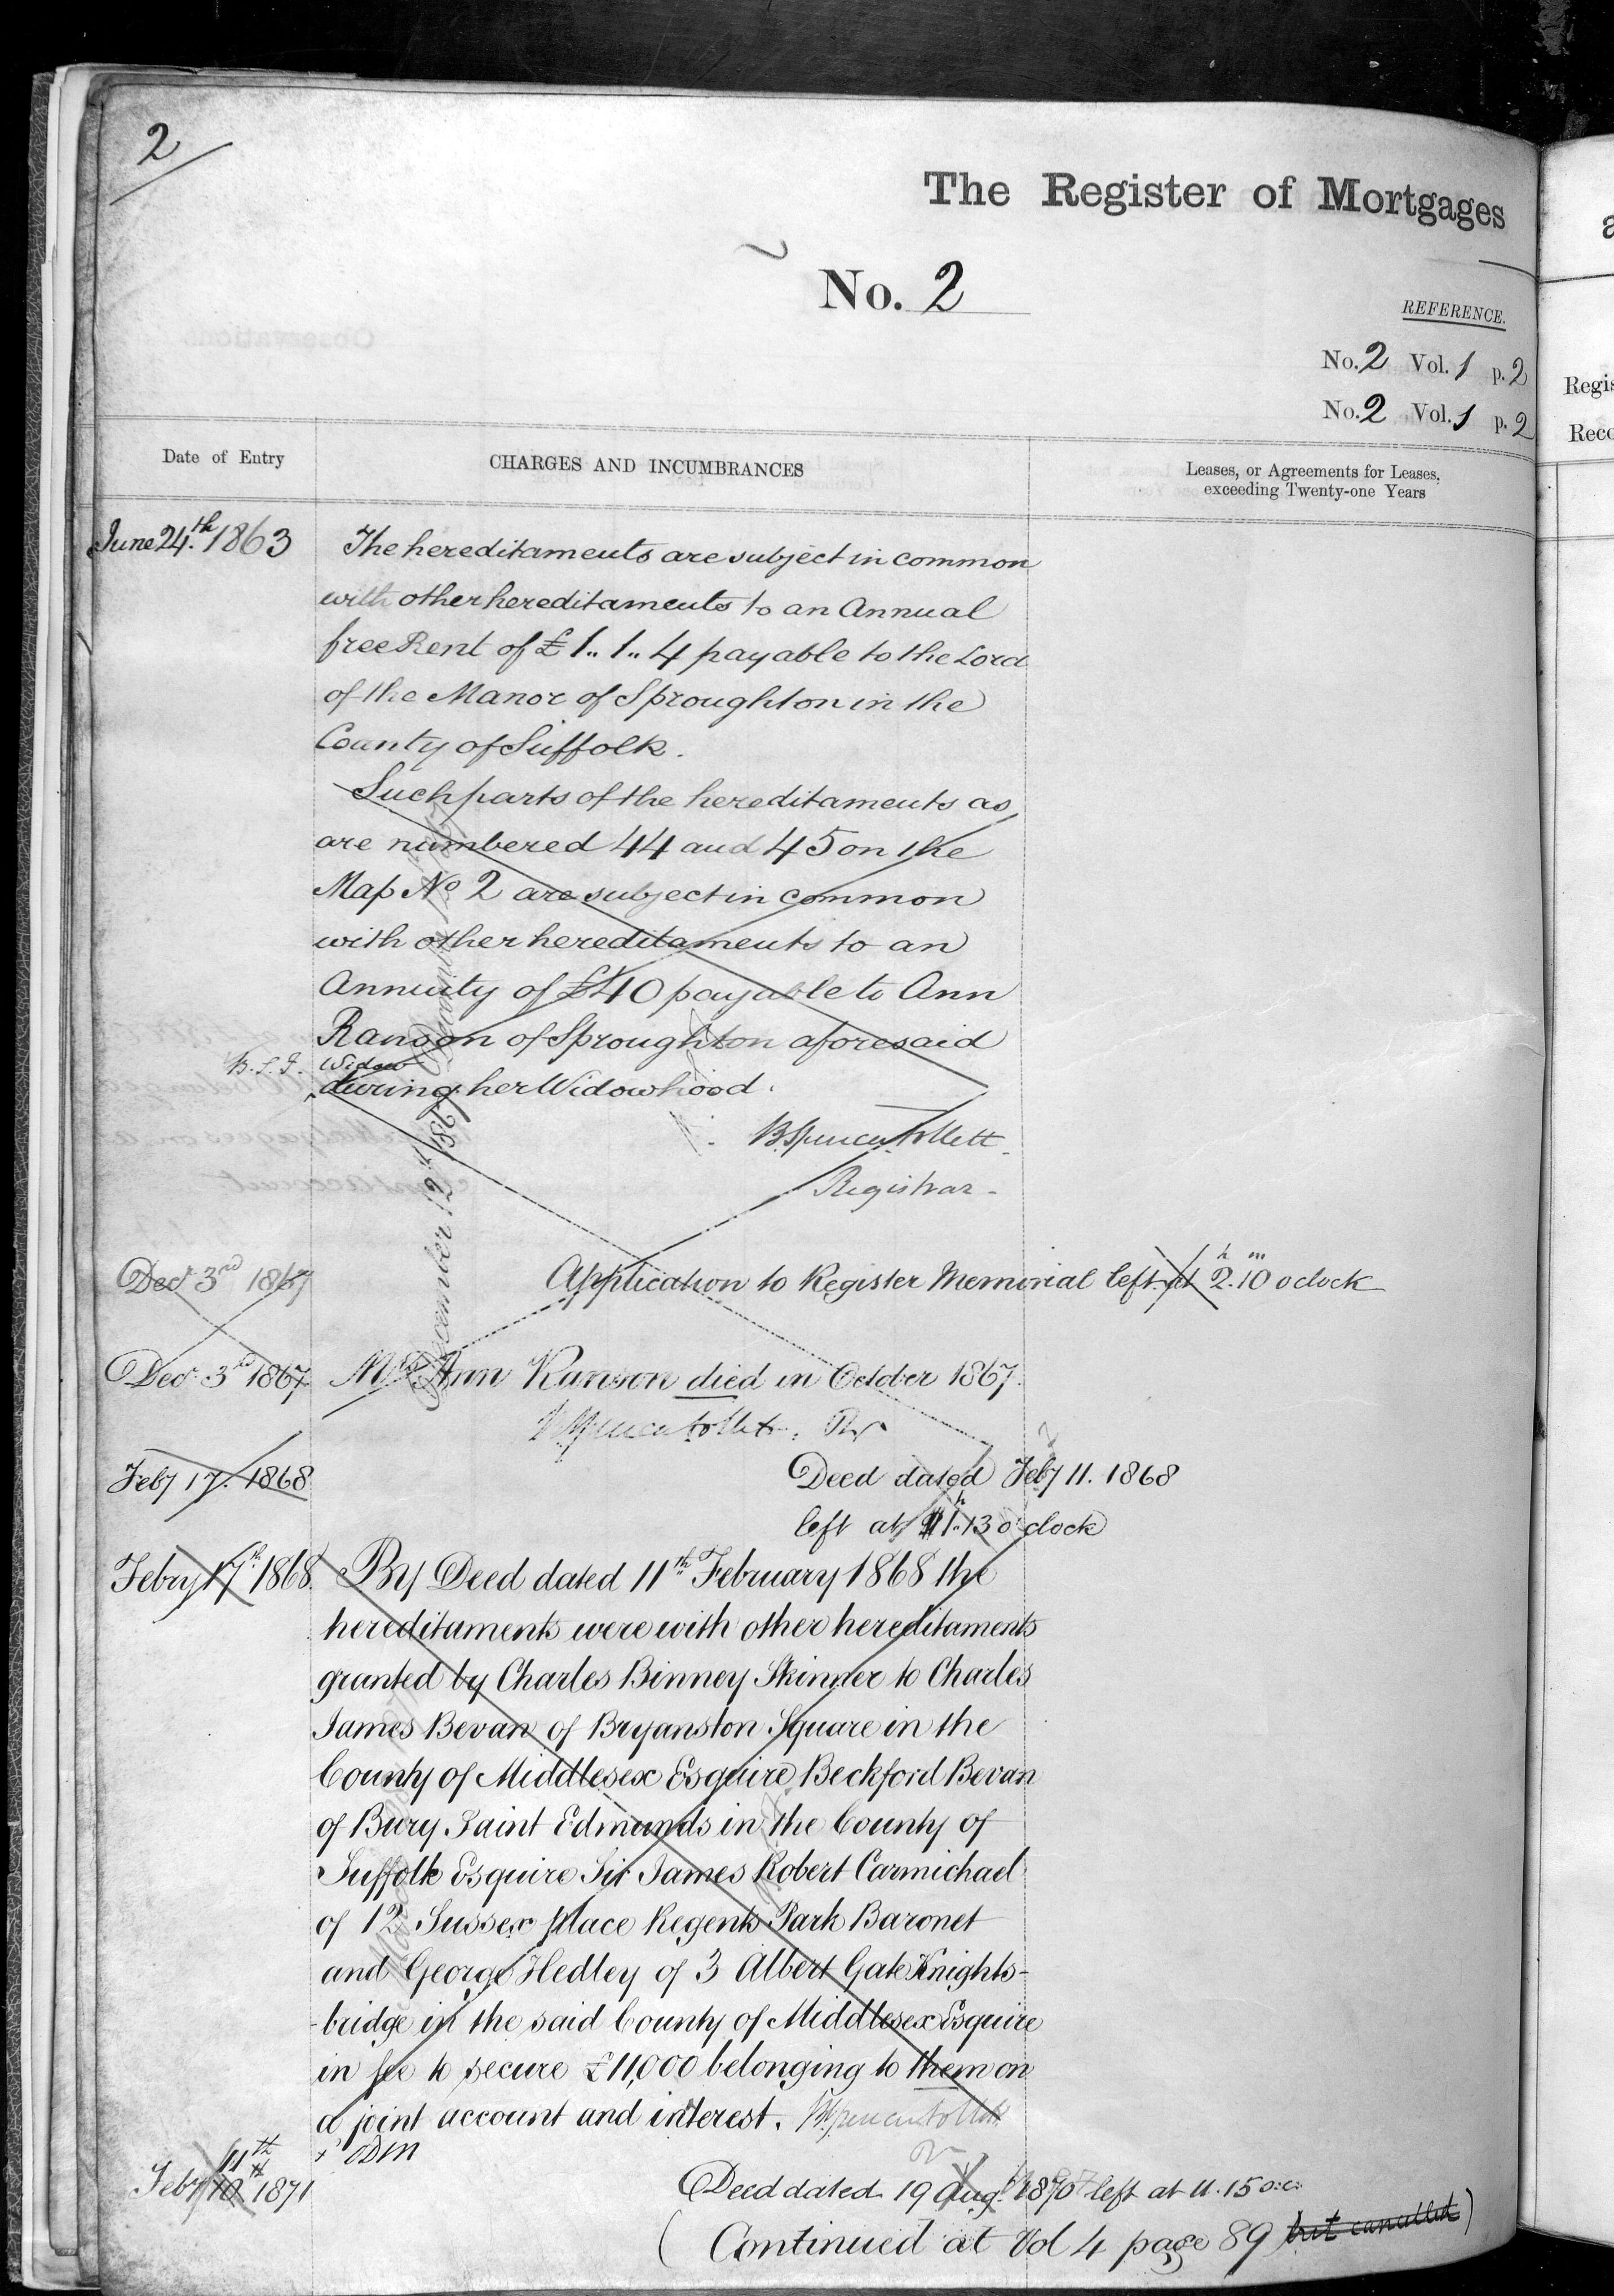 2
The Register of Mortgages
No. 2
REFERENCE.
No. 2 Vol. 1 p. 2
No. 2 Vol. 1 p. 2
Regis
Reco
Date of Entry
CHARGES AND INCUMBRANCES
Leases, or Agreements for Leases,
exceeding Twenty-one Years
June 24th. 1863 The hereditaments are subject in common
with other hereditaments to an Annual
free Rent of £1.. 1.. 4 payable to the Lord
of the Manor of Sproughton in the
County of Suffolk.
Such parts of the hereditaments as
are numbered 44 and 45 on the
Map No 2 are subject in common
with other hereditaments to an
Annuity of £40 payable to Ann
Ranson of Sproughton aforesaid
Widow
during her Widowhood.
B Spencer Follett
Registrar
December 12th 1867
Decr 3rd 1867 Application to Register Memorial left at 2h.10m o clock
Decr 3rd 1867. Mrs Ann Ranson died in October 1867.
B Spencer Follett, Rr
Feby 17. 1868 Deed dated Feby 11. 1868
left at 11h.13 o'clock
Febry 17th. 1868. By Deed dated 11th February 1868 the
hereditaments were with other hereditaments
granted by Charles Binney Skinner to Charles
James Bevan of Bryanston Square in the
County of Middlesex Esquire Beckford Bevan
of Bury Saint Edmunds in the County of
Suffolk Esquire Sir James Robert Carmichael
of 12 Sussex place Regents Park Baronet
and George Hedley of 3 Albert Gate Knights-
-bridge in the said County of Middlesex Esquire
in fee to secure £11,000 belonging to them on
a joint account and interest. B Spencer Follett
11th
Feby 10th 1871 Deed dated 19 Aug. 1870 left at 11.15 o.c.
(Continued at Vol 4 page 89 but cancelled)